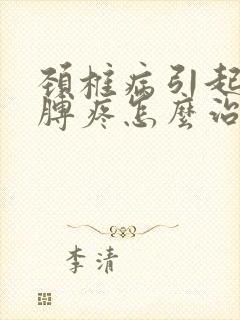 颈椎病引起
脾疼怎麼治
李清